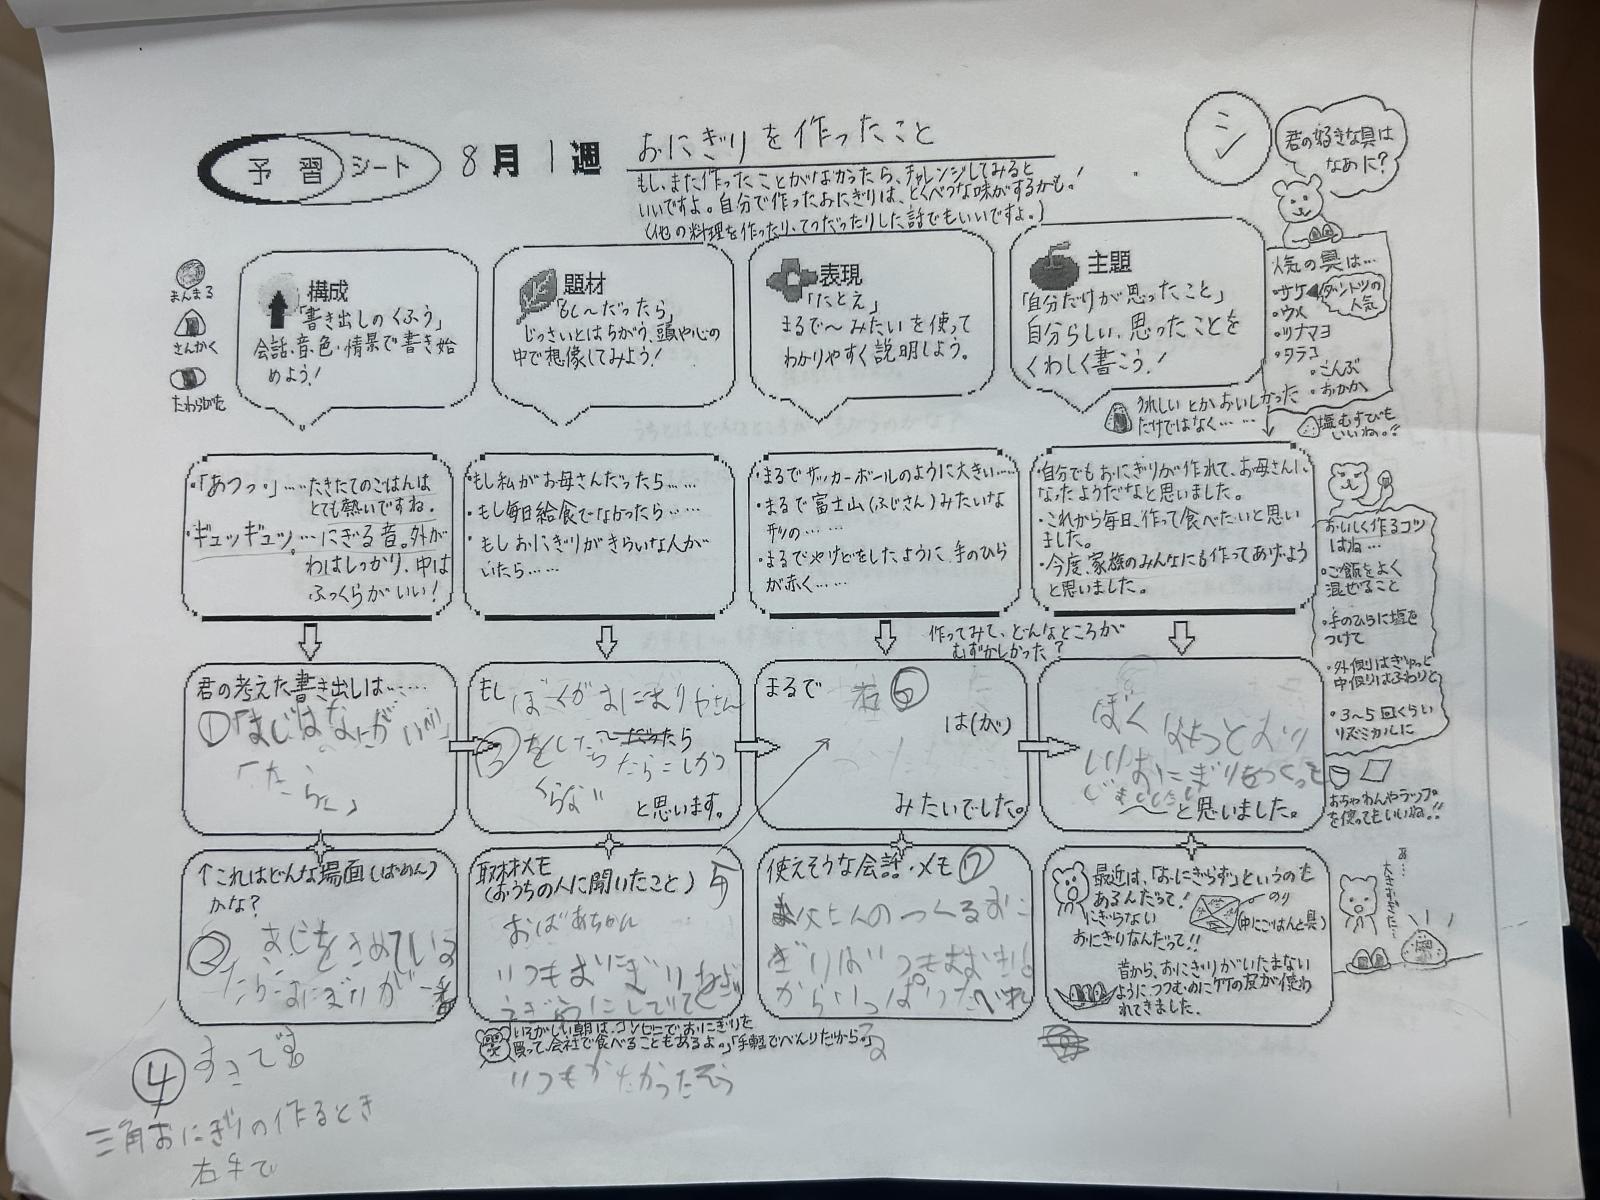 予習シート 8月1週 おにぎりを作ったこと
もし、まだ作ったことがなかったら、チャレンジしてみると
いいですよ。自分で作ったおにぎりは、とくべつな味がするかも!
(他の料理を作ったり、てつだったりした話でもいいですよ。)
シ
君の好きな具は
なあに?
まんまる
さんかく
たわらがた
構成
「書き出しのくふう」
会話・音・色・情景で書き始
めよう!
題材
「もし〜だったら」
じっさいとはちがう、頭や心の
中で想像してみよう!
表現
「たとえ」
まるで〜みたいを使って
わかりやすく説明しよう。
主題
「自分だけが思ったこと」
自分らしい、思ったことを
くわしく書こう!
うれしいとかおいしかった
だけではなく……
人気の具は…
・サケ
ダントツの
人気
・ウメ
・ツナマヨ
・タラコ
・こんぶ
・おかか
塩むすびも
いいね。!!
・「あつっ。」……たきたてのごはんは
とても熱いですね。
・ギュッギュッ。…にぎる音。外が
わはしっかり、中は
ふっくらがいい!
・もし私がお母さんだったら……
・もし毎日給食でなかったら……
・もしおにぎりがきらいな人が
いたら……
・まるでサッカーボールのように大きい…
・まるで富士山(ふじさん)みたいな
形の……
・まるでやけどをしたように、手のひら
が赤く……
・自分でもおにぎりが作れて、お母さんに
なったようだなと思いました。
・これから毎日、作って食べたいと思い
ました。
・今度、家族のみんなにも作ってあげよう
と思いました。
おいしく作るコツ
はね…
・ご飯をよく
混ぜること
・手のひらに塩を
つけて
・外側はぎゅっと
中側はふわりと
・3〜5回くらい
リズミカルに
おちゃわんやラップ
を使ってもいいね。!!
作ってみて、どんなところが
むずかしかった?
君の考えた書き出しは……
①「まじはなにがいい」
「たらこ」
もし ぼくがおにぎりやさん
③をしたら
たらこしかつ
くらない
と思います。
まるで ⑥
は(が)
みたいでした。
ぼくはもっと
おにぎりをつくって
と思いました。
↑これはどんな場面(ばめん)
かな?
②
をきめている
たらこおにぎりが一番
④すきです
三角おにぎりの作るとき
右手で
取材メモ
(おうちの人に聞いたこと) 5
おばあちゃん
いつもおにぎり
いつもかたかったそう
いそがしい朝は、コンビニでおにぎりを
買って、会社で食べることもあるよ。「手軽でべんりだから。」
使えそうな会話・メモ ⑦
父さんのつくるおに
ぎりはいつも
からいっぱい
最近は、「おにぎらず」というのも
あるんだって!
にぎらない
おにぎりなんだって!!
のり
(中にごはんと具)
昔から、おにぎりがいたまない
ようにつつむのにタケの皮が使わ
れてきました。
あ…
大きすぎた…